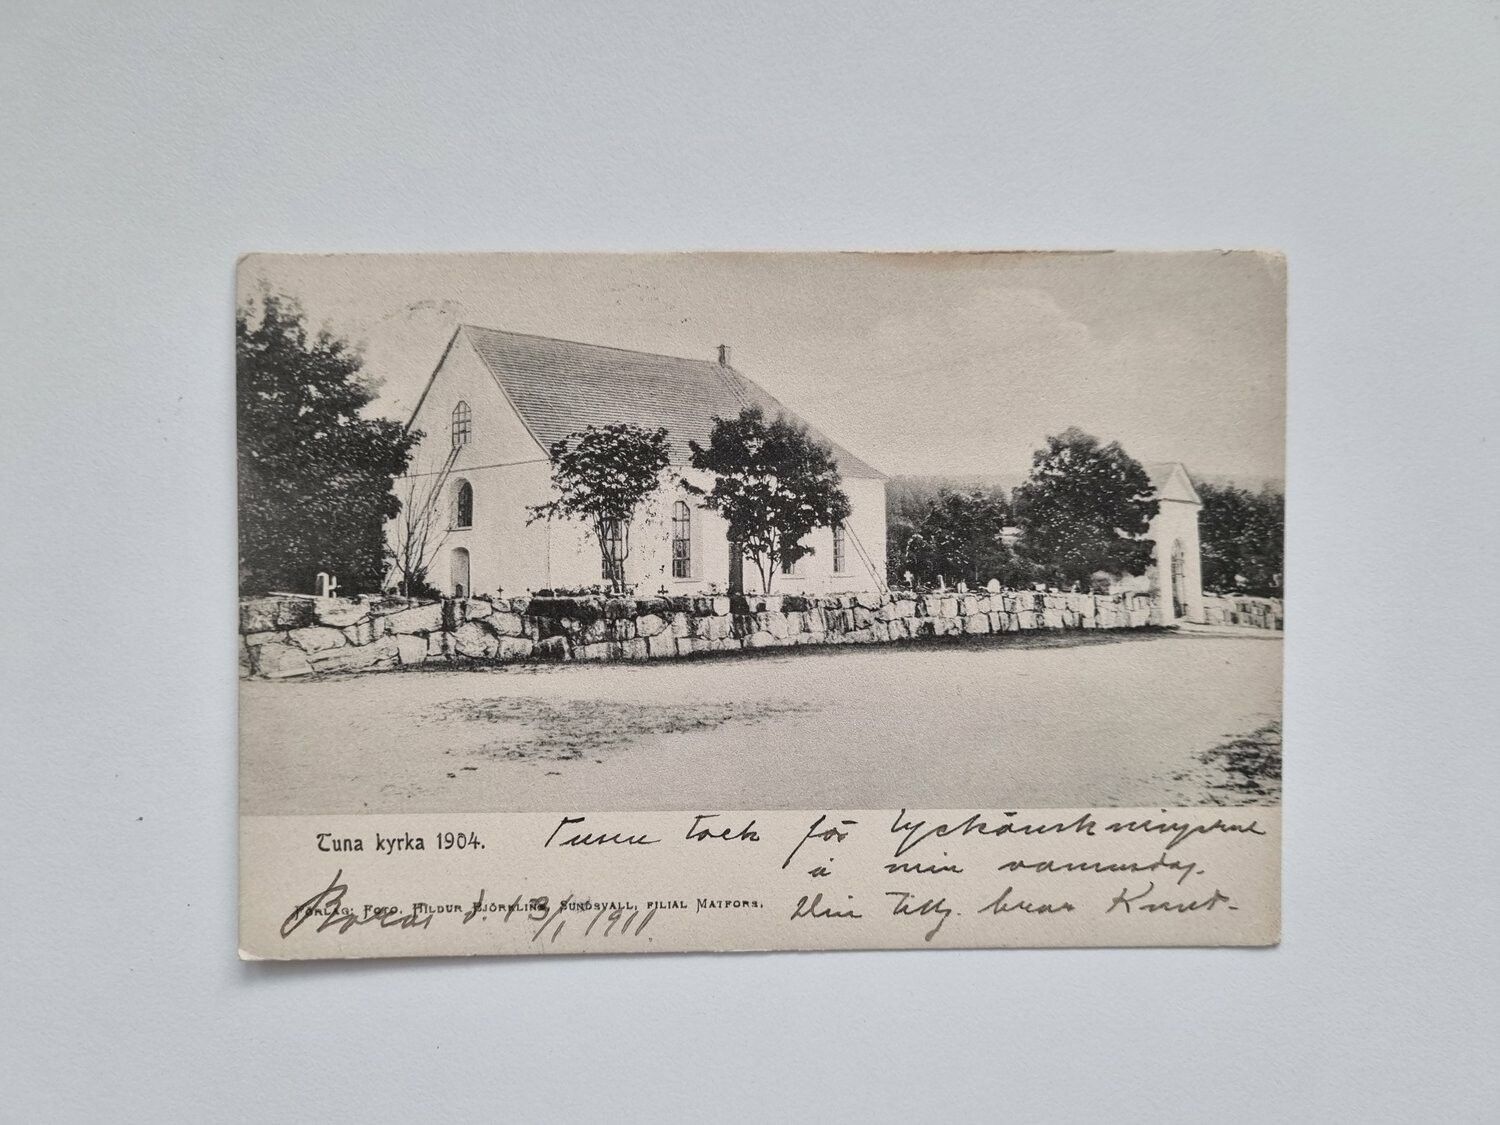 Tuna kyrka 1904.
Tusen tack för lyckönskningarna
å min namnsdag.
Din tillg. bror Knut-
FÖRLAG: FOTO. HILDUR BJÖRKLING, SUNDSVALL, FILIAL MATFORS.
Borås d. 13/1 1911